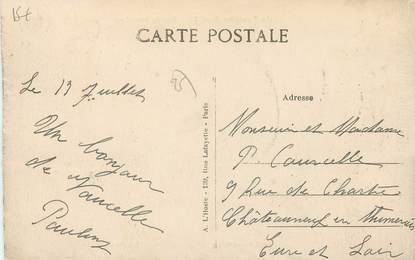 CARTE POSTALE
Le 13 Juillet
Un bonjour
de
Adresse
Monsieur et Madame
P. Courcelle
9 Rue de Chartres
Châteauneuf en Thimerais
Eure et Loir
A. L'Hoste - 139, Rue Lafayette - Paris